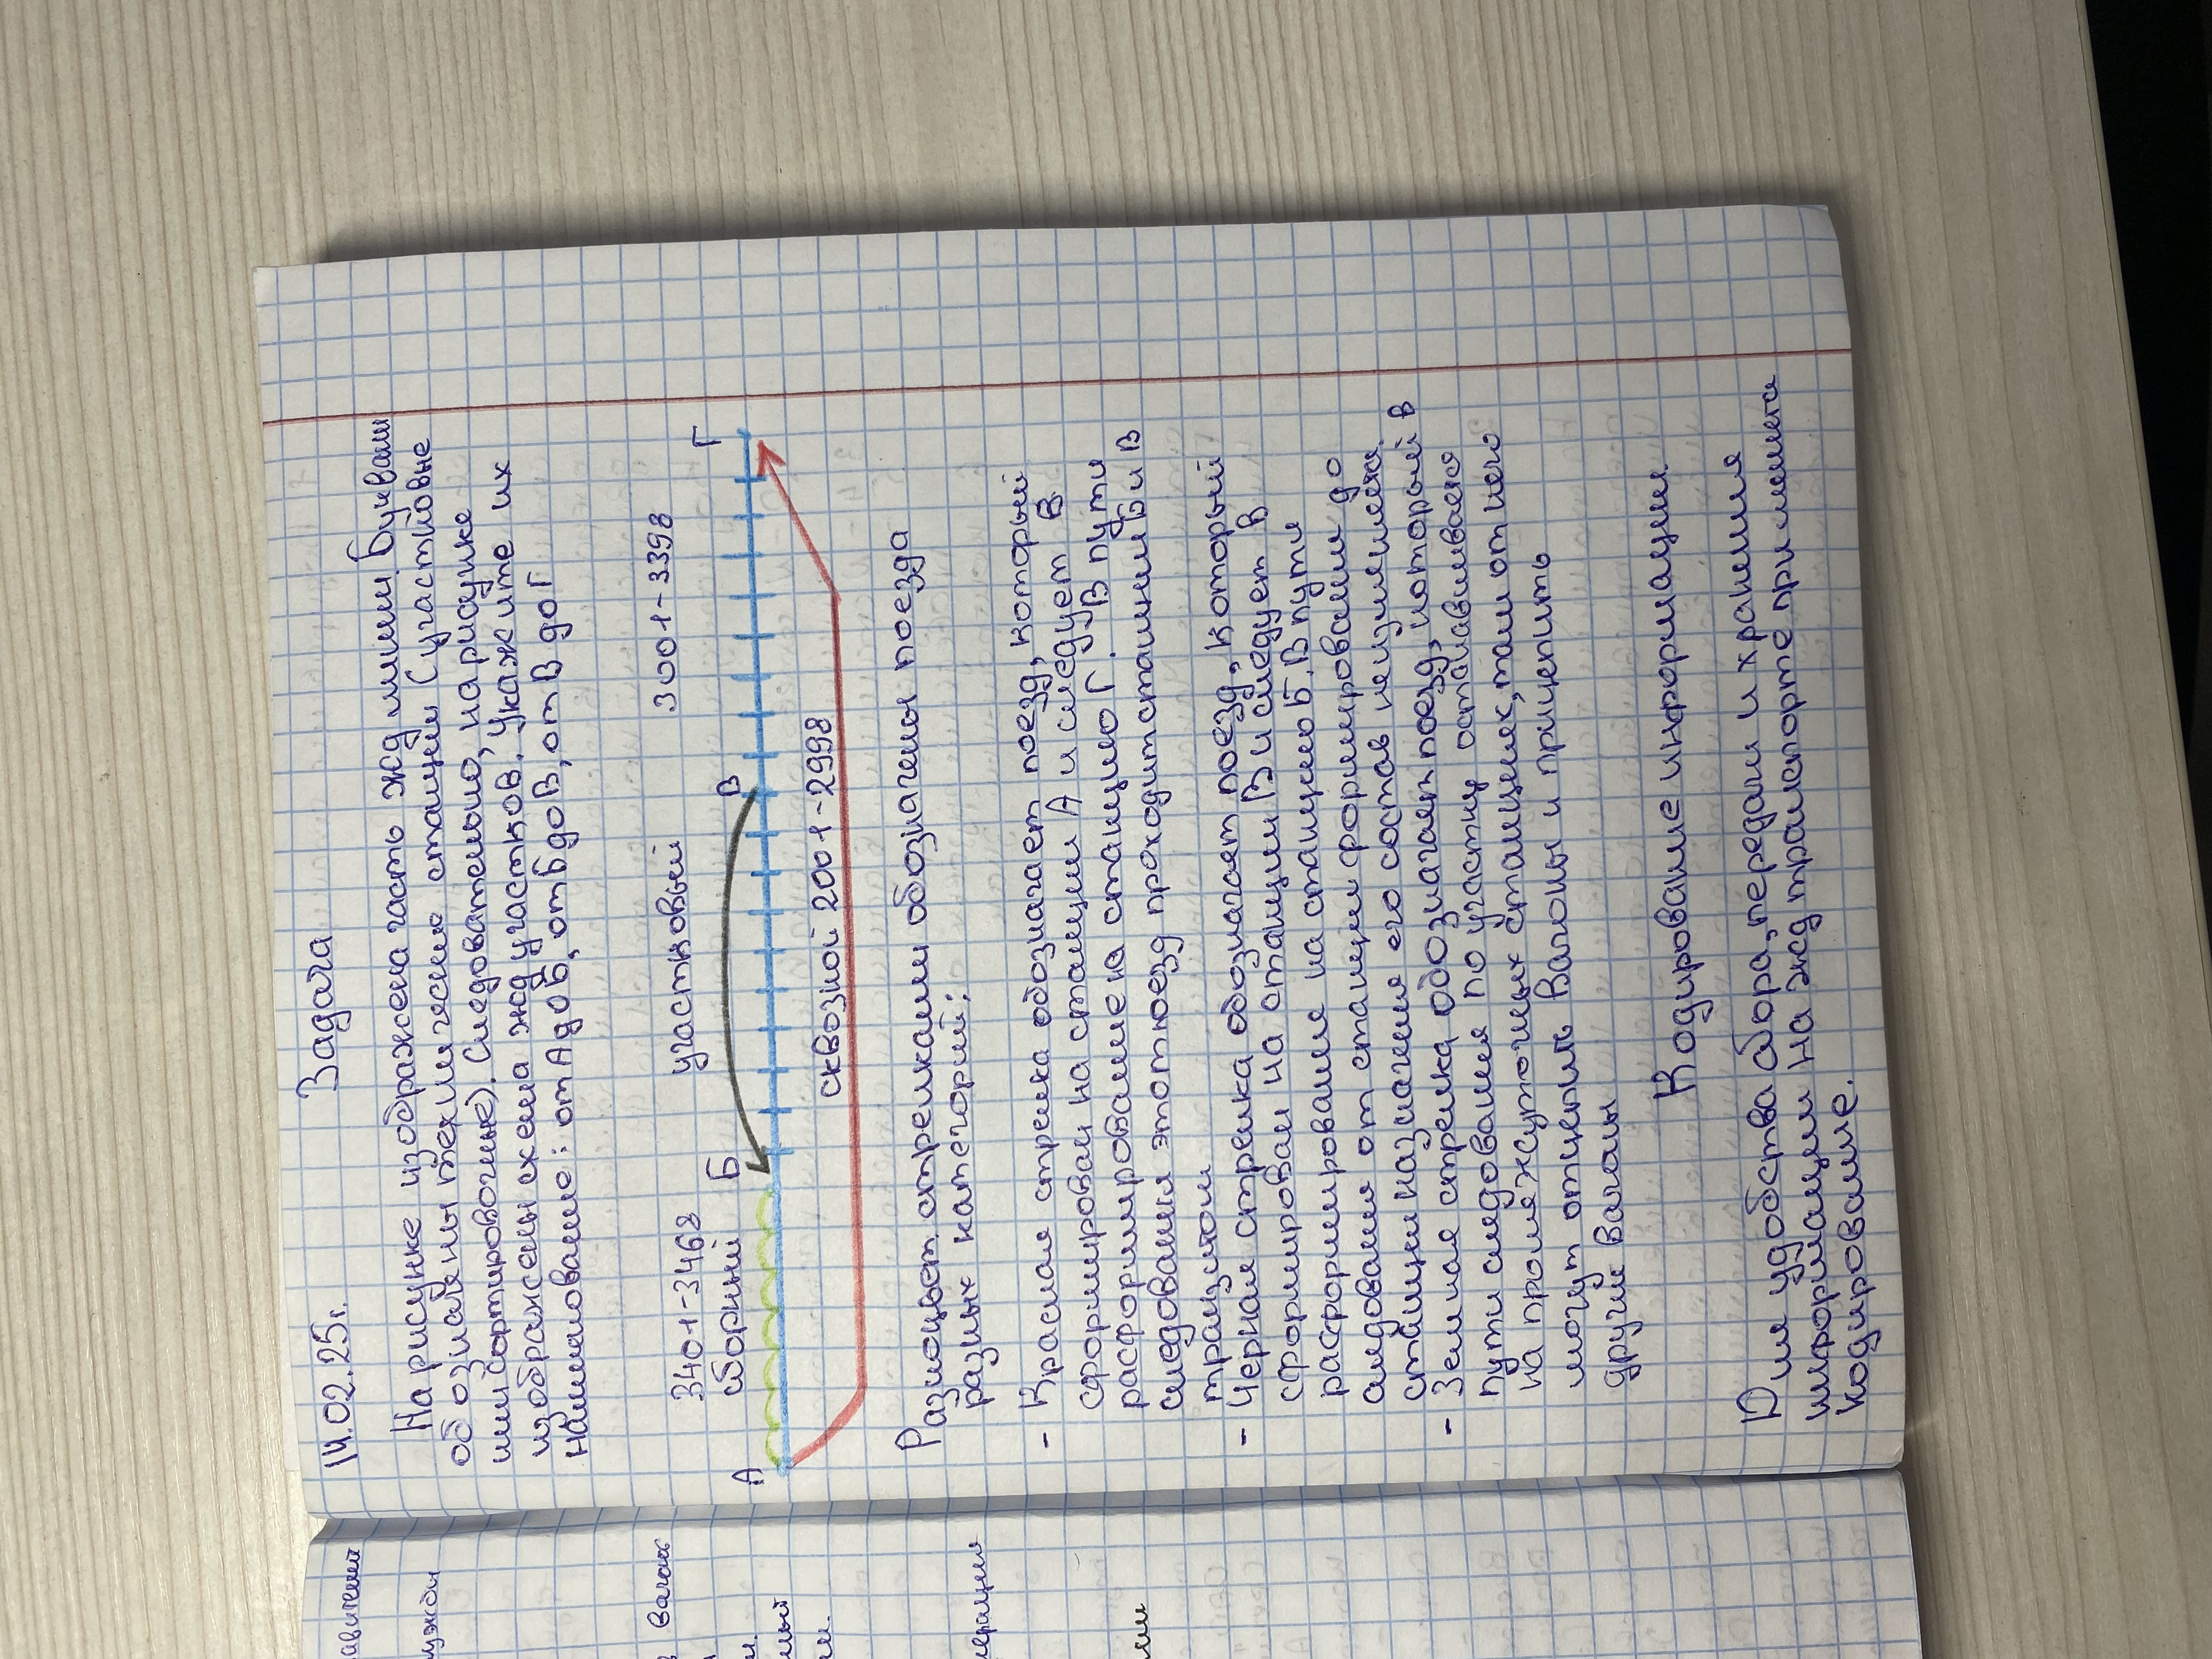 14.02.25г. Задача
На рисунке изображена часть жд линии. Буквами
обозначены технические станции (участковые
или сортировочные). Следовательно, на рисунке
изображены схема жд участков. Укажите их
наименование: от А до Б, от Б до В, от В до Г
3401-3468 участковый 3001-3398
сборный
А Б В Г
сквозной 2001-2998
Разноцвет. стрелками обозначены поезда
разных категорий:
- Красная стрелка обозначает поезд, который
сформирован на станции А и следует в
расформирование на станцию Г. В пути
следования этот поезд проходит станции Б и В
транзитом
- Черная стрелка обозначает поезд, который
сформирован на станции В и следует в
расформирование на станцию Б. В пути
следования от станции формирования до
станции назначения его состав не изменяется.
- Зеленая стрелка обозначает поезд, который в
пути следования по участку останавливается
на промежуточных станциях, там от него
могут отцепить вагоны и прицепить
другие вагоны
Кодирование информации
Для удобства сбора, передачи и хранения
информации на жд транспорте применяется
кодирование.
вагонах